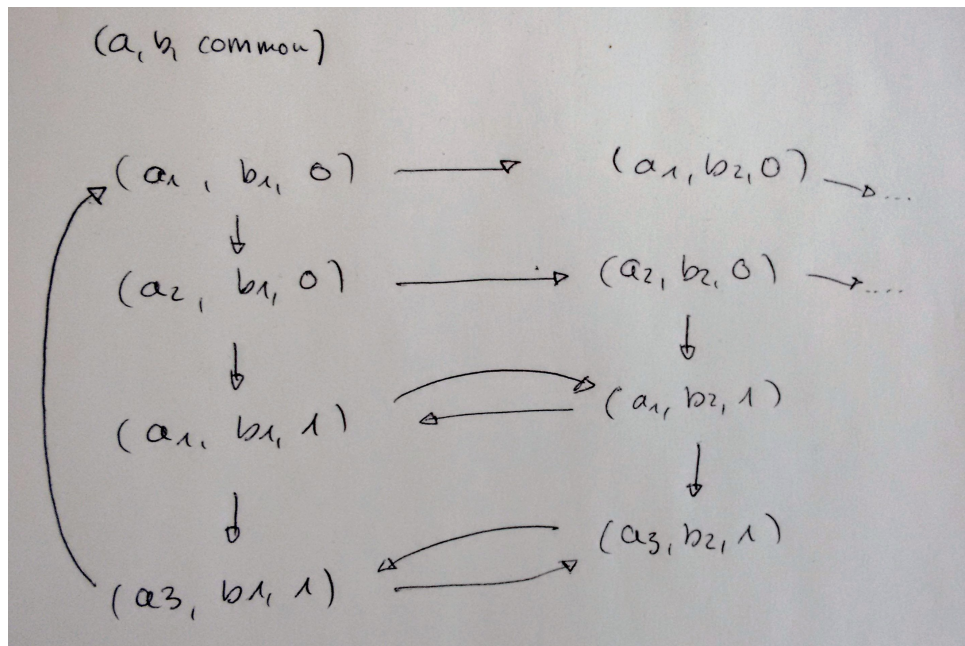 (a, b, common)
(a1, b1, 0) (a1, b2, 0) ...
(a2, b1, 0) (a2, b2, 0) ....
(a1, b1, 1) (a1, b2, 1)
(a3, b1, 1) (a3, b2, 1)